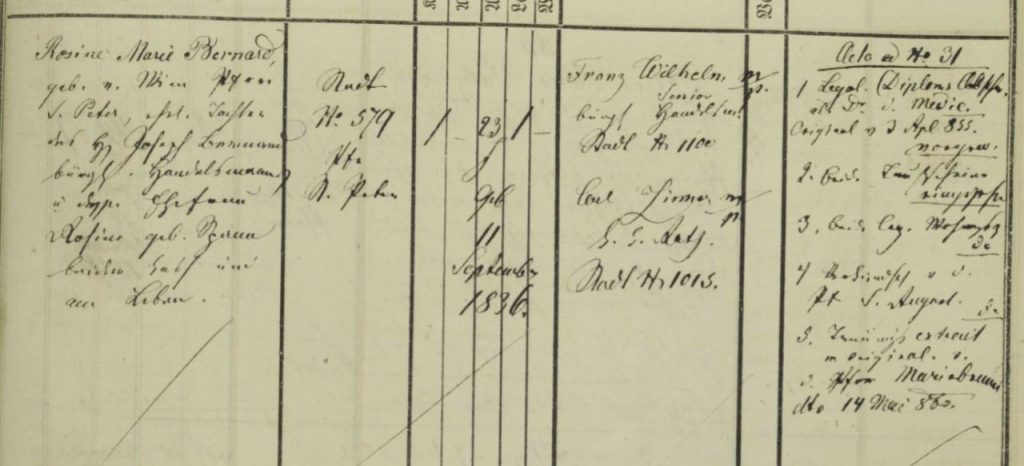 Rosine Marie Bernard,
geb. v. Wien Pfarre
S. Peter, ehel. Tochter
des H. Joseph Bernard
bürgl. Handelsmannes
u. dessen Ehefrau
Rosine geb.
beiden kath. und
am Leben.
Stadt
No 579
Pfr
St. Peter
1 - 23 1 -
Geb
11
September
1836.
Franz Wilhelm
Senior
bürgl Handelsm.
Stadt Nr 1100
Carl Zinner
k. k. Rath.
Stadt Nr 1015.
Acta ad No 31
1 Legal. (Diploms
als Dr. d. Medic.
Original v 3 Apl 855.
2. beid. Taufscheine
3. beid. leg.
do
4
Pf S. August. do
5. Trauungs extract
in original. v.
d. Pfarre Mariabrunn
dto 14 Mai 860.